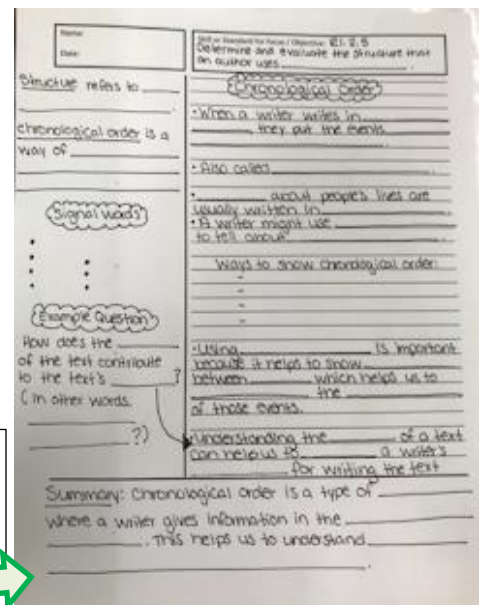 Name:
Date:
Skill or Standard for Focus / Objective: RI.2.5
Determine and evaluate the structure that
an author uses __________.
Structure refers to ______
__________.
chronological order is a
way of __________
Signal Words
Example Question
How does the ________
of the text contribute
to the text's ________?
(in other words,
________?)
Chronological Order
• When a writer writes in ________
________, they put the events
________.
• Also called ________.
• ________ about people's lives are
usually written in ________.
• A writer might use ________
to tell about ________.
Ways to show chronological order:
-
-
-
-
• Using ________ is important
because it helps to show ________
between ________ which helps us to
________ the ________
of those events.
• Understanding the ________ of a text
can help us to ________ a writer's
________ for writing the text
Summary: Chronological order is a type of ________
where a writer gives information in the ________
________. This helps us to understand ________
________.